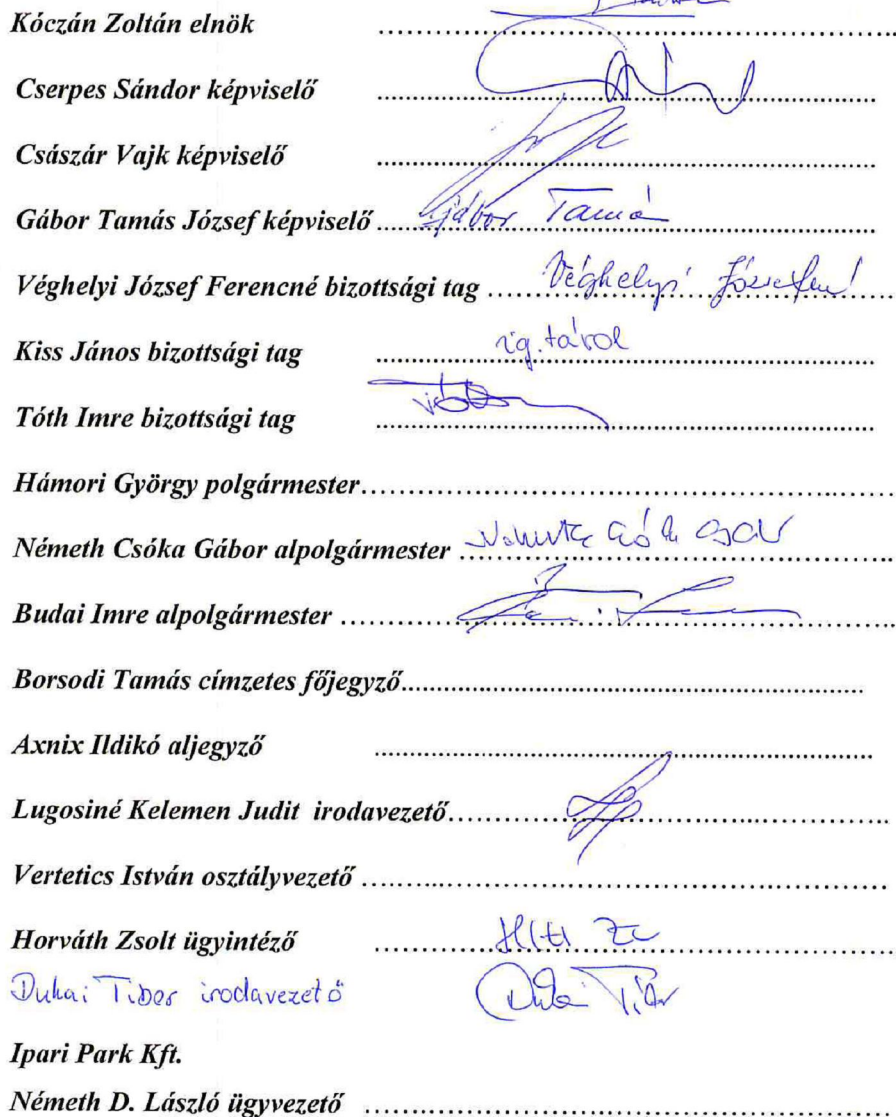 Kóczán Zoltán elnök ..........
Cserpes Sándor képviselő ..........
Császár Vajk képviselő ..........
Gábor Tamás József képviselő .......... Gábor Tamá
Véghelyi József Ferencné bizottsági tag .......... Véghelyi Józsefné
Kiss János bizottsági tag .......... ig. távol
Tóth Imre bizottsági tag ..........
Hámori György polgármester ..........
Németh Csóka Gábor alpolgármester ..........
Budai Imre alpolgármester ..........
Borsodi Tamás címzetes főjegyző ..........
Axnix Ildikó aljegyző ..........
Lugosiné Kelemen Judit irodavezető ..........
Vertetics István osztályvezető ..........
Horváth Zsolt ügyintéző ..........
Duhai Tibor irodavezető
Ipari Park Kft.
Németh D. László ügyvezető ..........